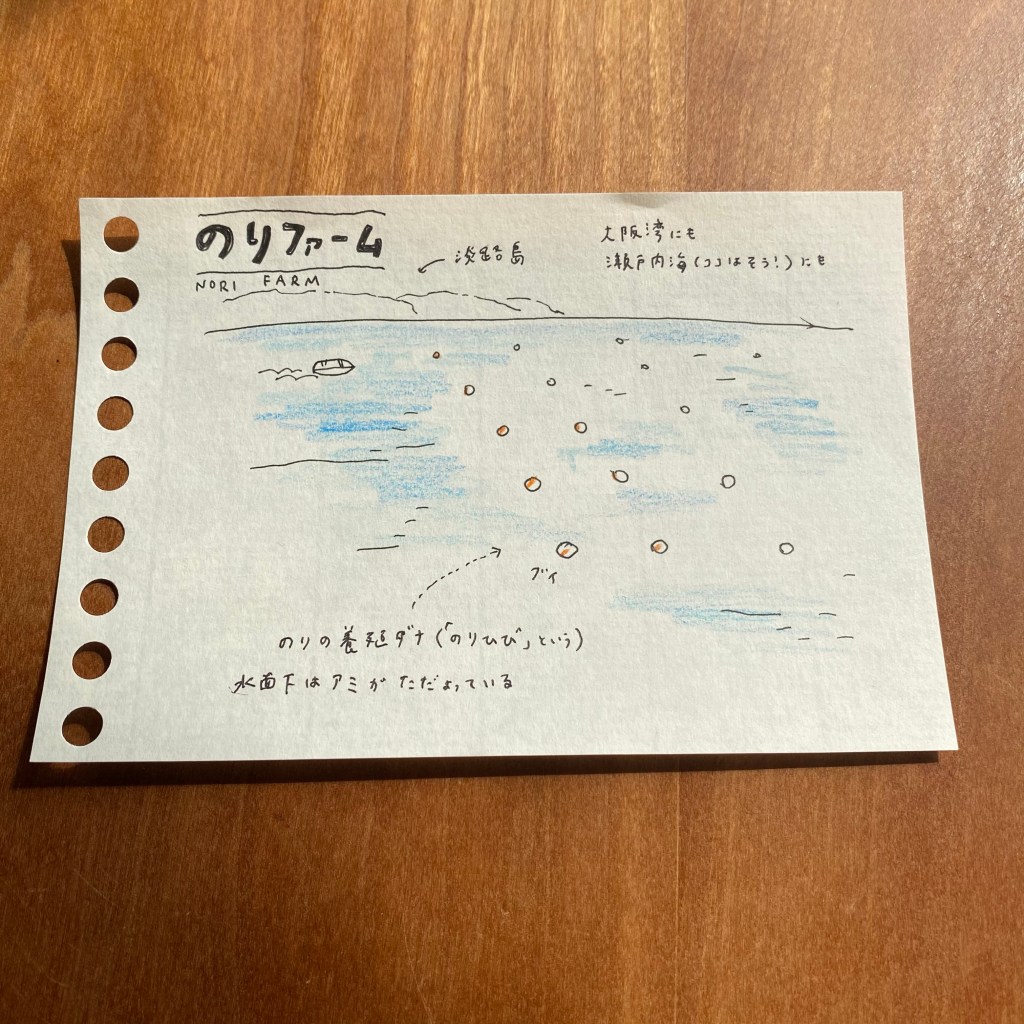 のりファーム
NORI FARM
淡路島
大阪湾にも
瀬戸内海(ココはそう!)にも
ブイ
のりの養殖ダナ(「のりひび」という)
水面下はアミがただよっている